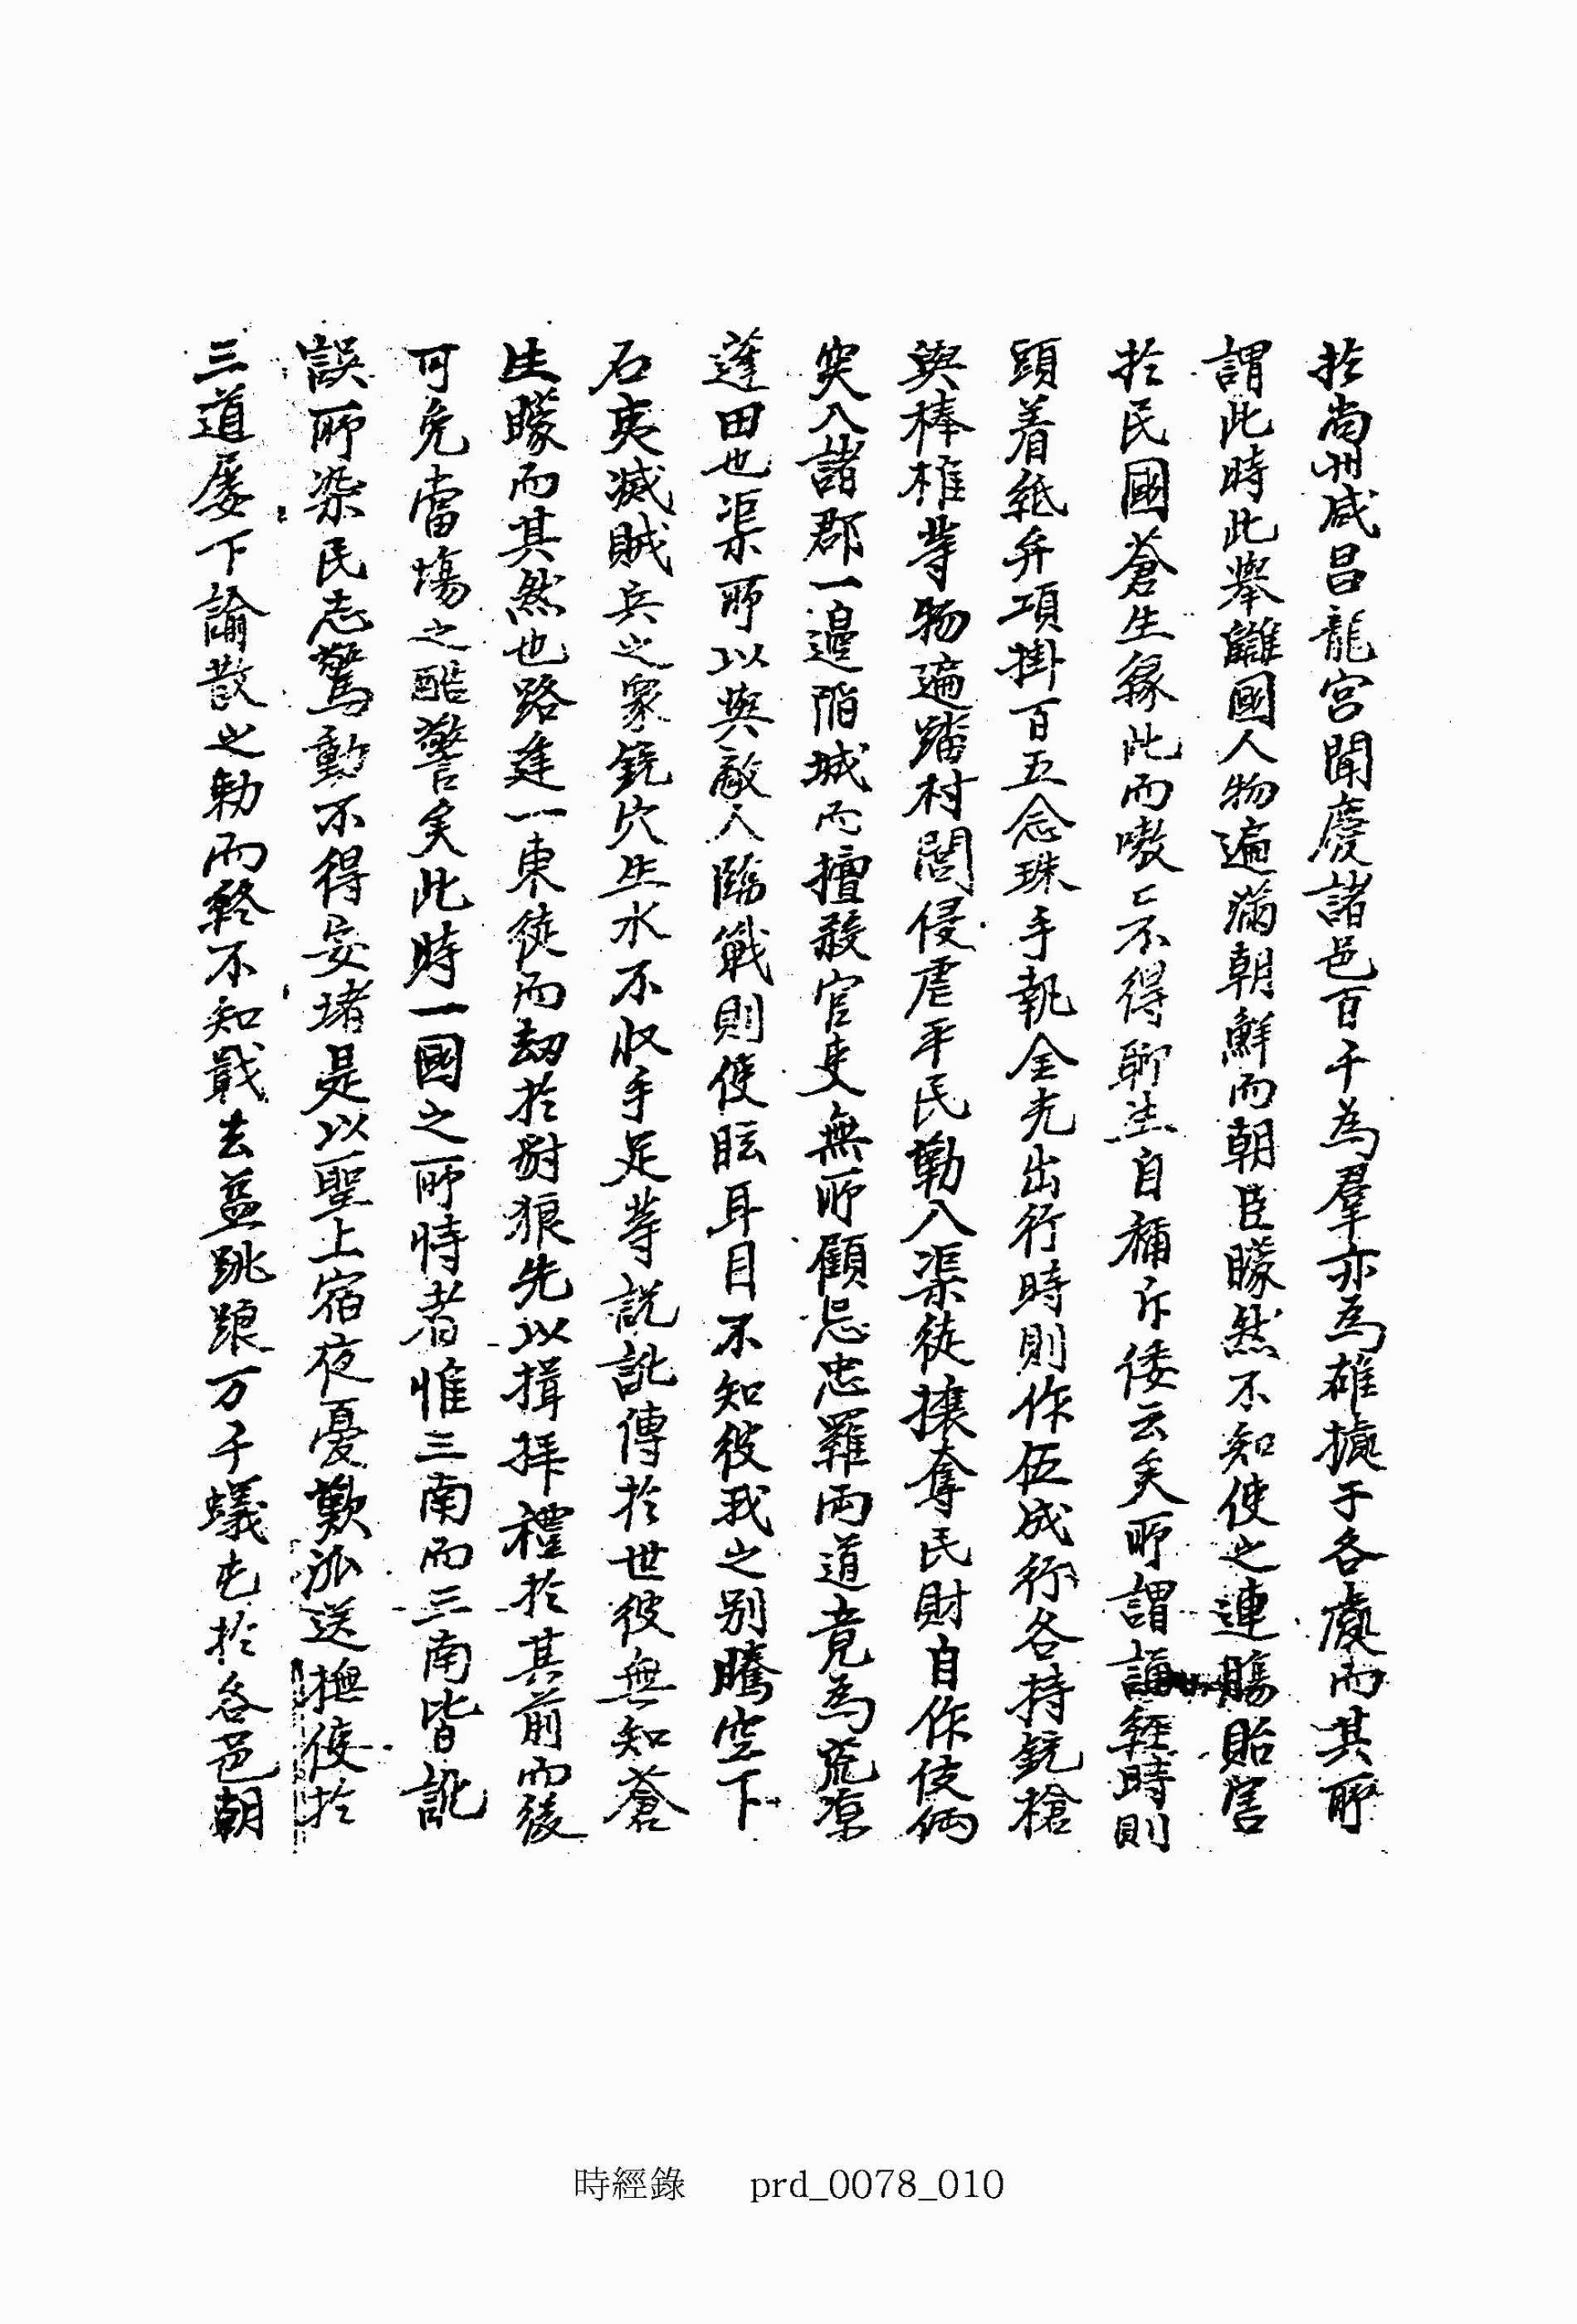 於尙州咸昌龍宮聞慶諸邑百千為羣亦為雄據于各處而其所
謂此時此擧雖國人物遍滿朝鮮而朝臣矇然不知使之連觴貽害
於民國蒼生緣此而嗷〻不得聊生自稱斥倭云矣所謂誦經時則
頭着紙弁項掛百五念珠手執全尢出行時則作伍成行各持銃槍
與棒椎等物遍踏村閭侵虐平民勒入渠徒攘奪民財自作伎倆
突入諸郡一邊陷城而擅殺官吏無所顧忌忠羅兩道竟為荒凉
蓬田也渠所以與敵人臨戰則使眩耳目不知彼我之別騰空下
石夷滅賊兵之衆銃穴生水不収手足等說訛傳於世彼無知蒼
生矇而其然也路逢一東徒而刼於豺狼先以揖拜禮於其前而後
可免當塲之酷警矣此時一國之所恃者惟三南而三南皆訛
誤所染民志驚動不得安堵是以聖上宿夜憂歎派送撫使於
三道屡下諭散之勅而終不知戢去益跳踉万千蟻屯於各邑朝
時經錄 prd_0078_010